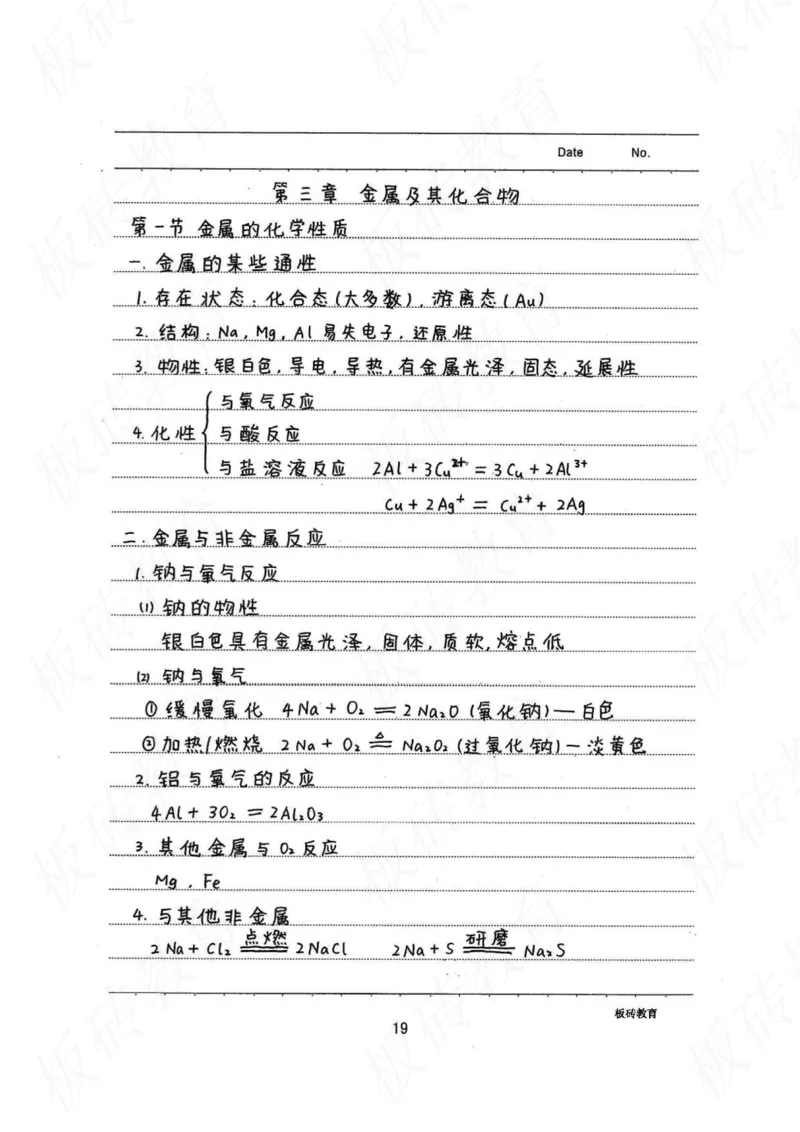 Date No.
第三章 金属及其化合物
第一节 金属的化学性质
一.金属的某些通性
1.存在状态:化合态(大多数),游离态(Au)
2.结构:Na,Mg,Al易失电子,还原性
3.物性:银白色,导电,导热,有金属光泽,固态,延展性
与氧气反应
4.化性 与酸反应
与盐溶液反应 2Al+3Cu²⁺=3Cu+2Al³⁺
Cu+2Ag⁺=Cu²⁺+2Ag
二.金属与非金属反应
1.钠与氧气反应
(1)钠的物性
银白色具有金属光泽,固体,质软,熔点低
(2)钠与氧气
①缓慢氧化 4Na+O₂=2Na₂O(氧化钠)—白色
②加热/燃烧 2Na+O₂ ≜ Na₂O₂(过氧化钠)—淡黄色
2.铝与氧气的反应
4Al+3O₂=2Al₂O₃
3.其他金属与O₂反应
Mg,Fe
4.与其他非金属
2Na+Cl₂ 点燃 2NaCl 2Na+S 研磨 Na₂S
板砖教育
19